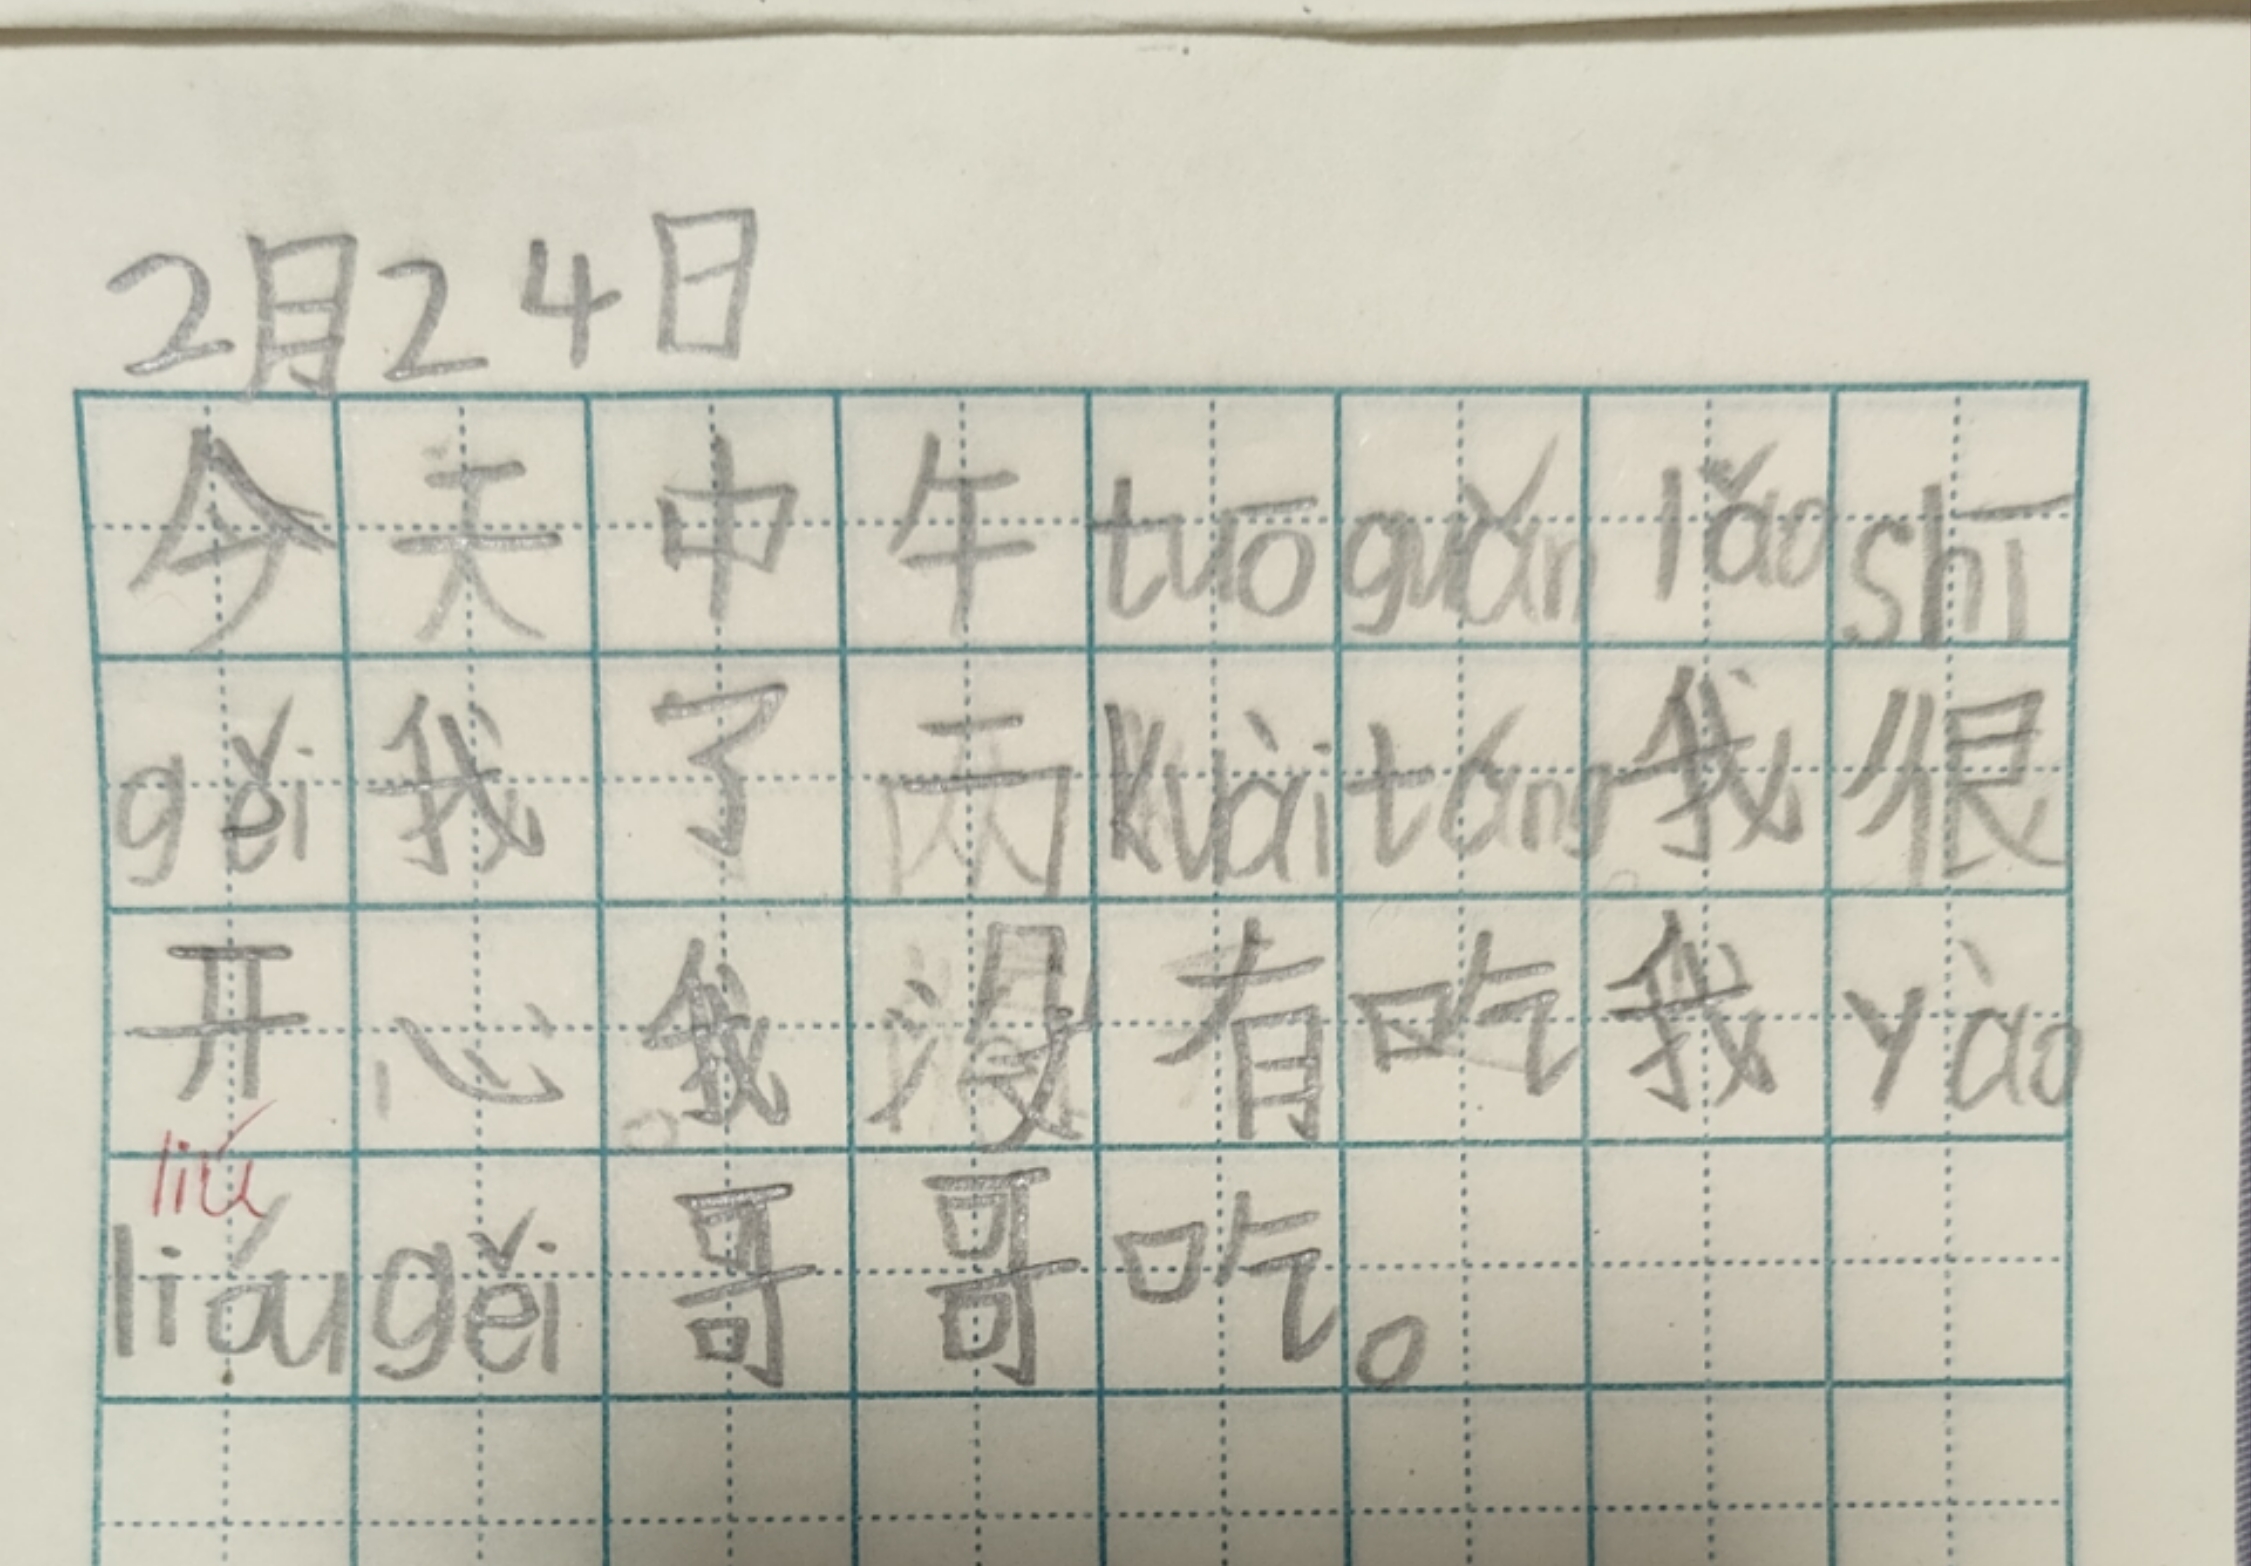 2月24日
今天中午tuōguǎnlǎoshī
gěi我了两kuàitáng。我很
开心。我没有吃我yào
liú
liáugěi哥哥吃。